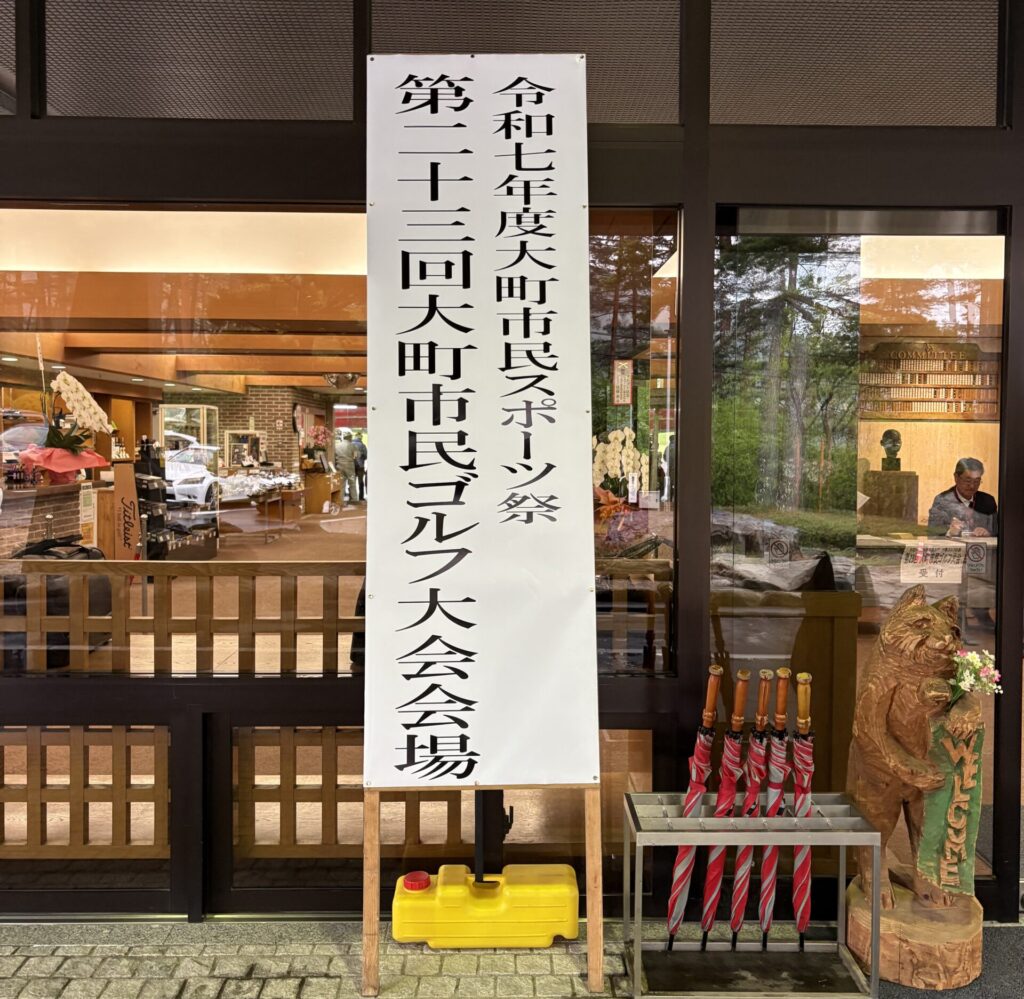 令和七年度大町市民スポーツ祭
第二十三回大町市民ゴルフ大会会場
Titleist
COMMITTEE
受付
WELCOME